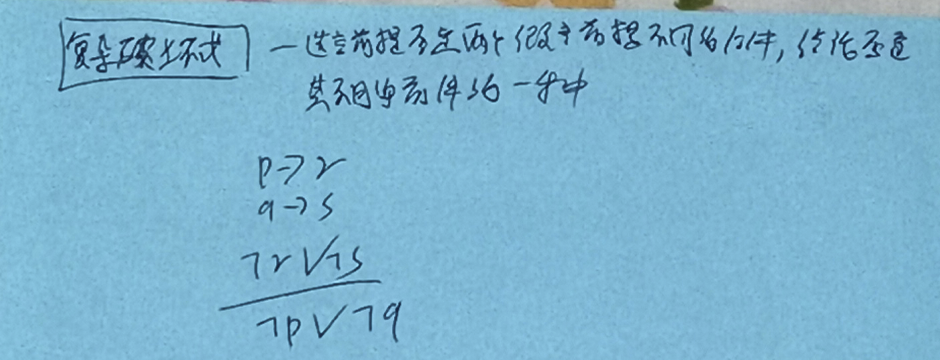 复杂破坏式 — 选言前提否定两个假言前提不同的后件,结论否定
其不同的前件的一种
p→r
q→s
¬r∨¬s
¬p∨¬q